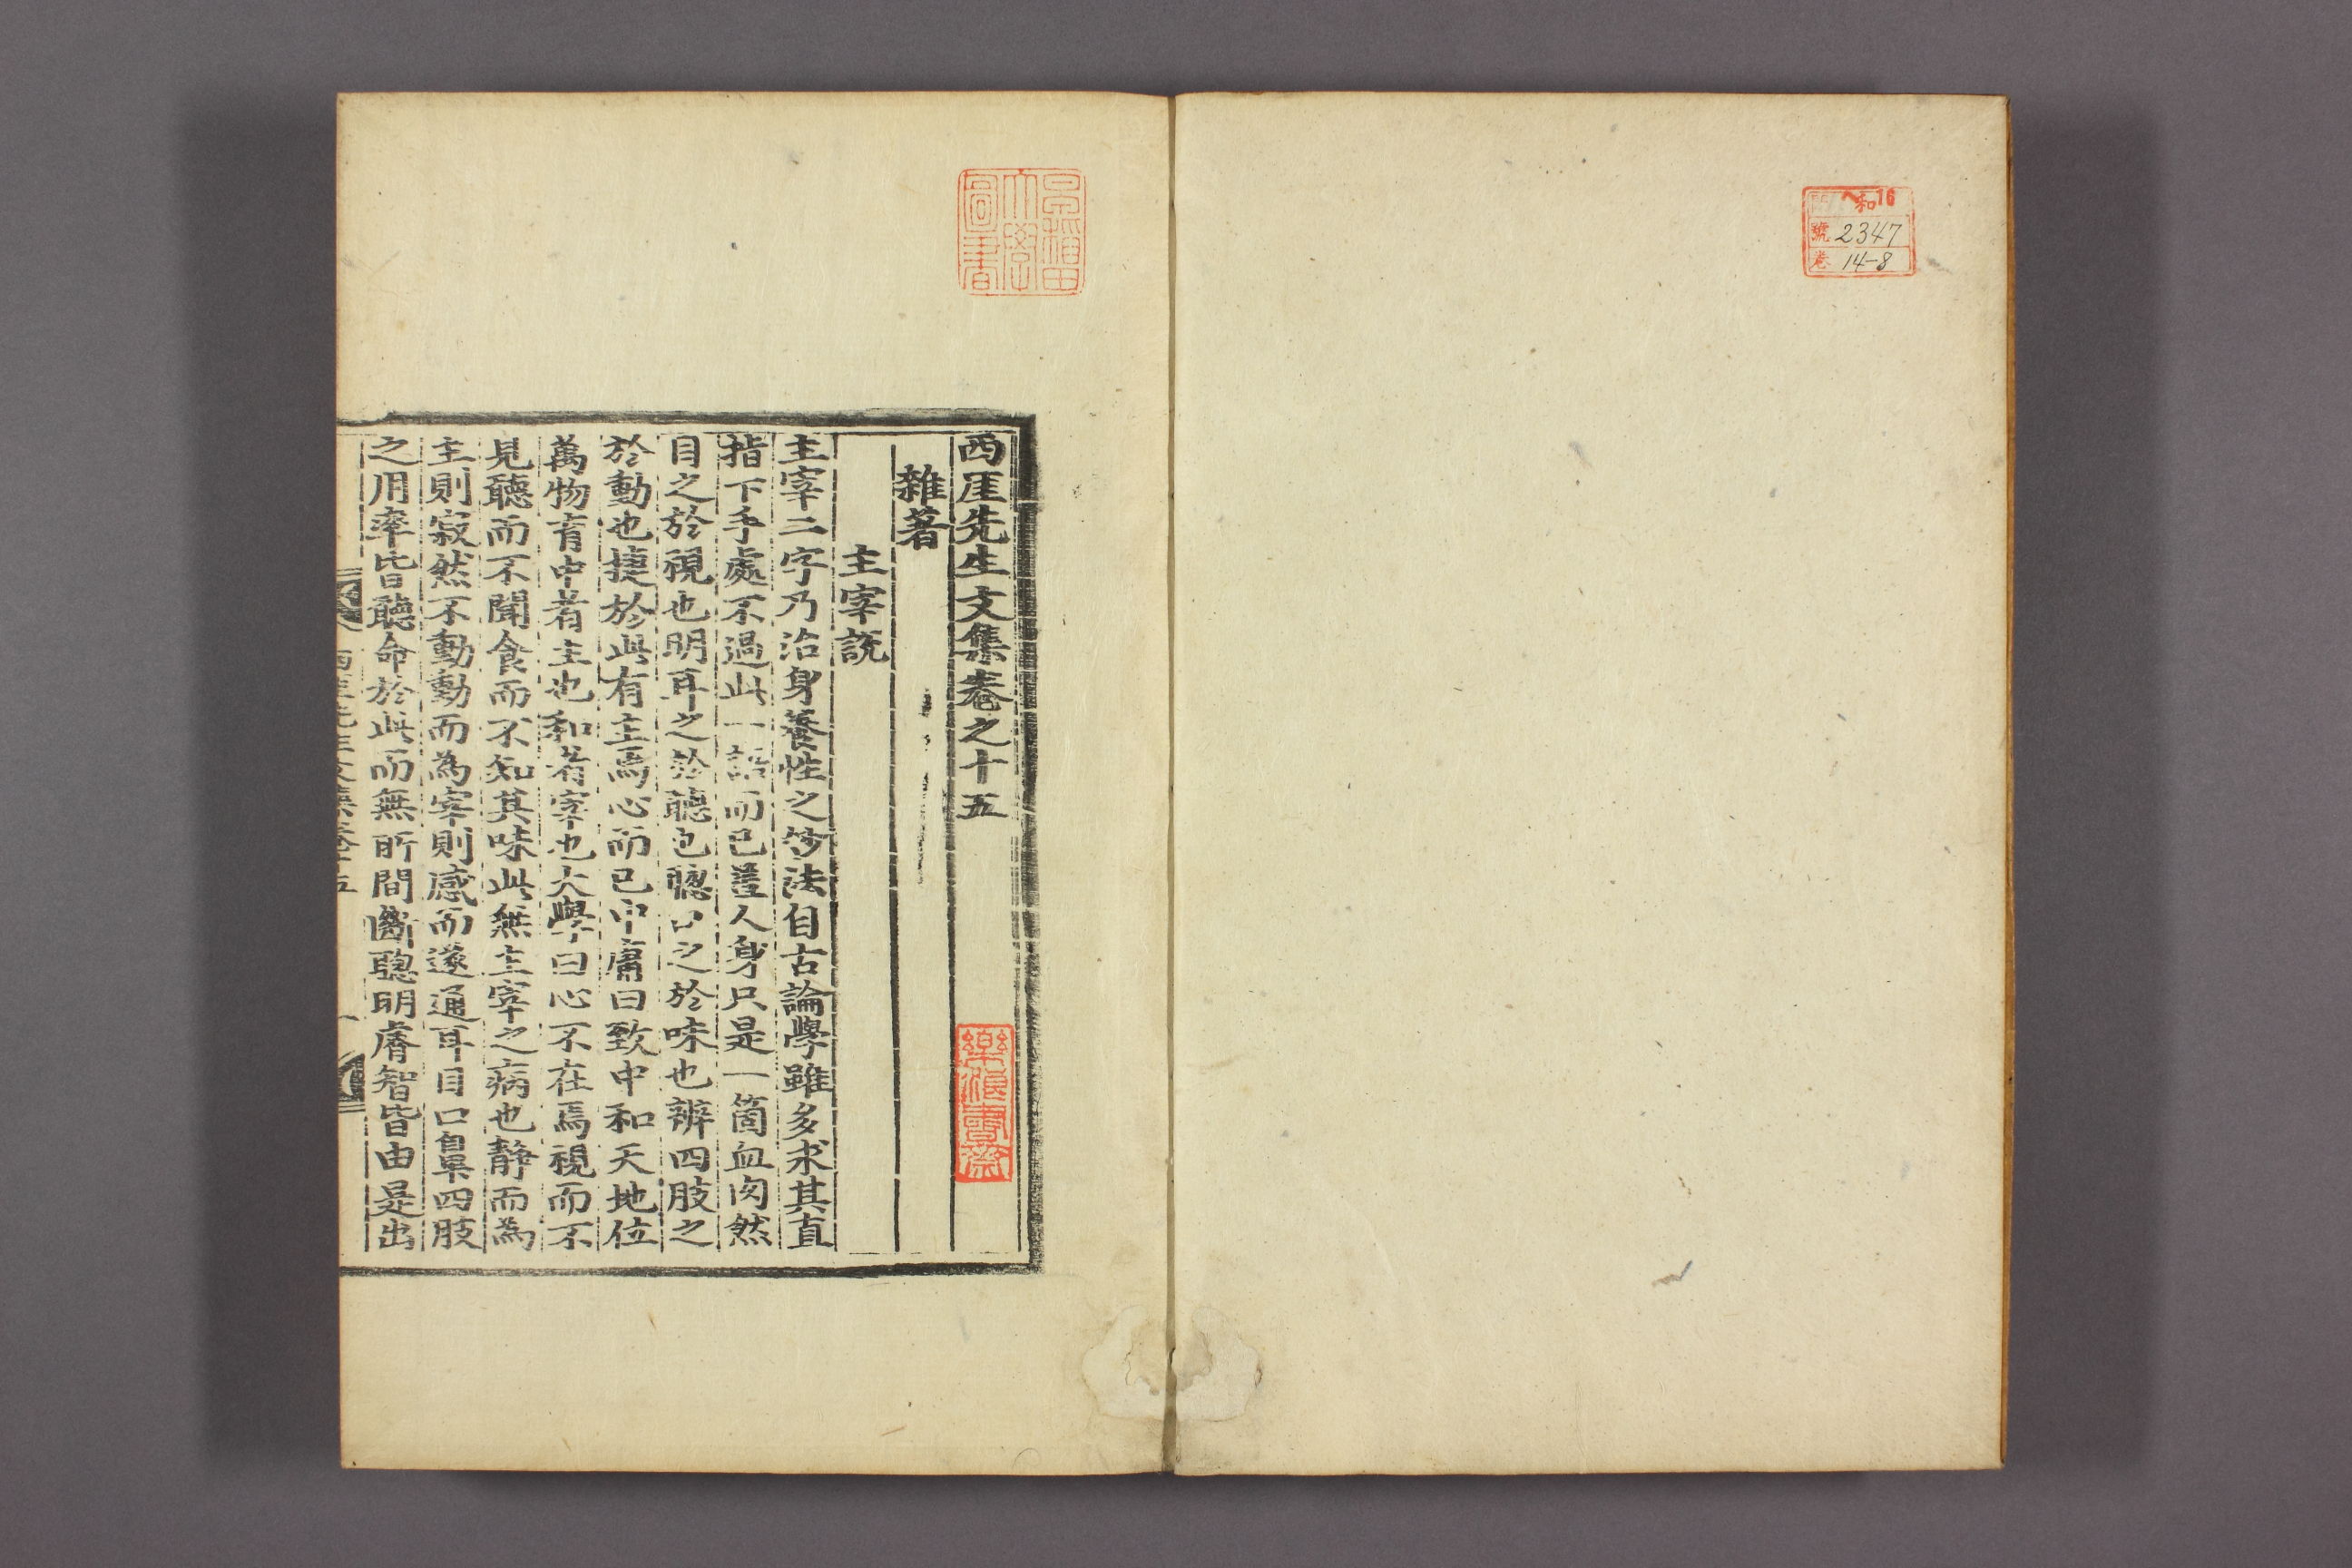 和16
號 2347
卷 14-8
早稲田
大學
圖書
西厓先生文集卷之十五
樂浪書齋
雜著
主宰說
主宰二字乃治身養性之妙法自古論學雖多求其直
指下手處不過此一語而已盖人身只是一箇血肉然
目之於視也明耳之於聽也聰口之於味也辨四肢之
於動也捷於此有主焉心而已中庸曰致中和天地位
萬物育中者主也和者宰也大學曰心不在焉視而不
見聽而不聞食而不知其味此無主宰之病也靜而為
主則寂然不動動而為宰則感而遂通耳目口鼻四肢
之用率皆聽命於此而無所間斷聰明睿智皆由是出
西厓先生文集卷十五
一